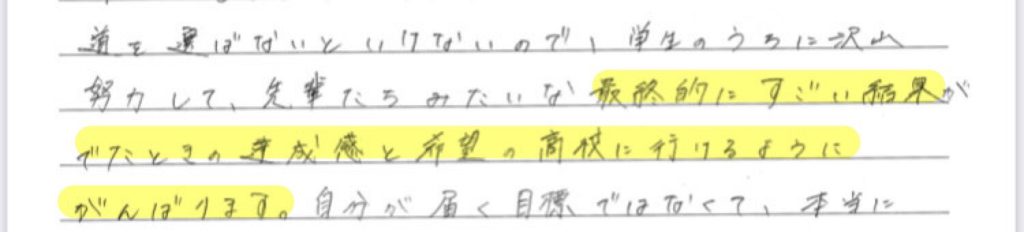 道を選ばないといけないので、学生のうちに沢山
努力して、先輩たちみたいな最終的にすごい結果が
でたときの達成感と希望の高校に行けるように
がんばります。自分が届く目標ではなくて、本当に